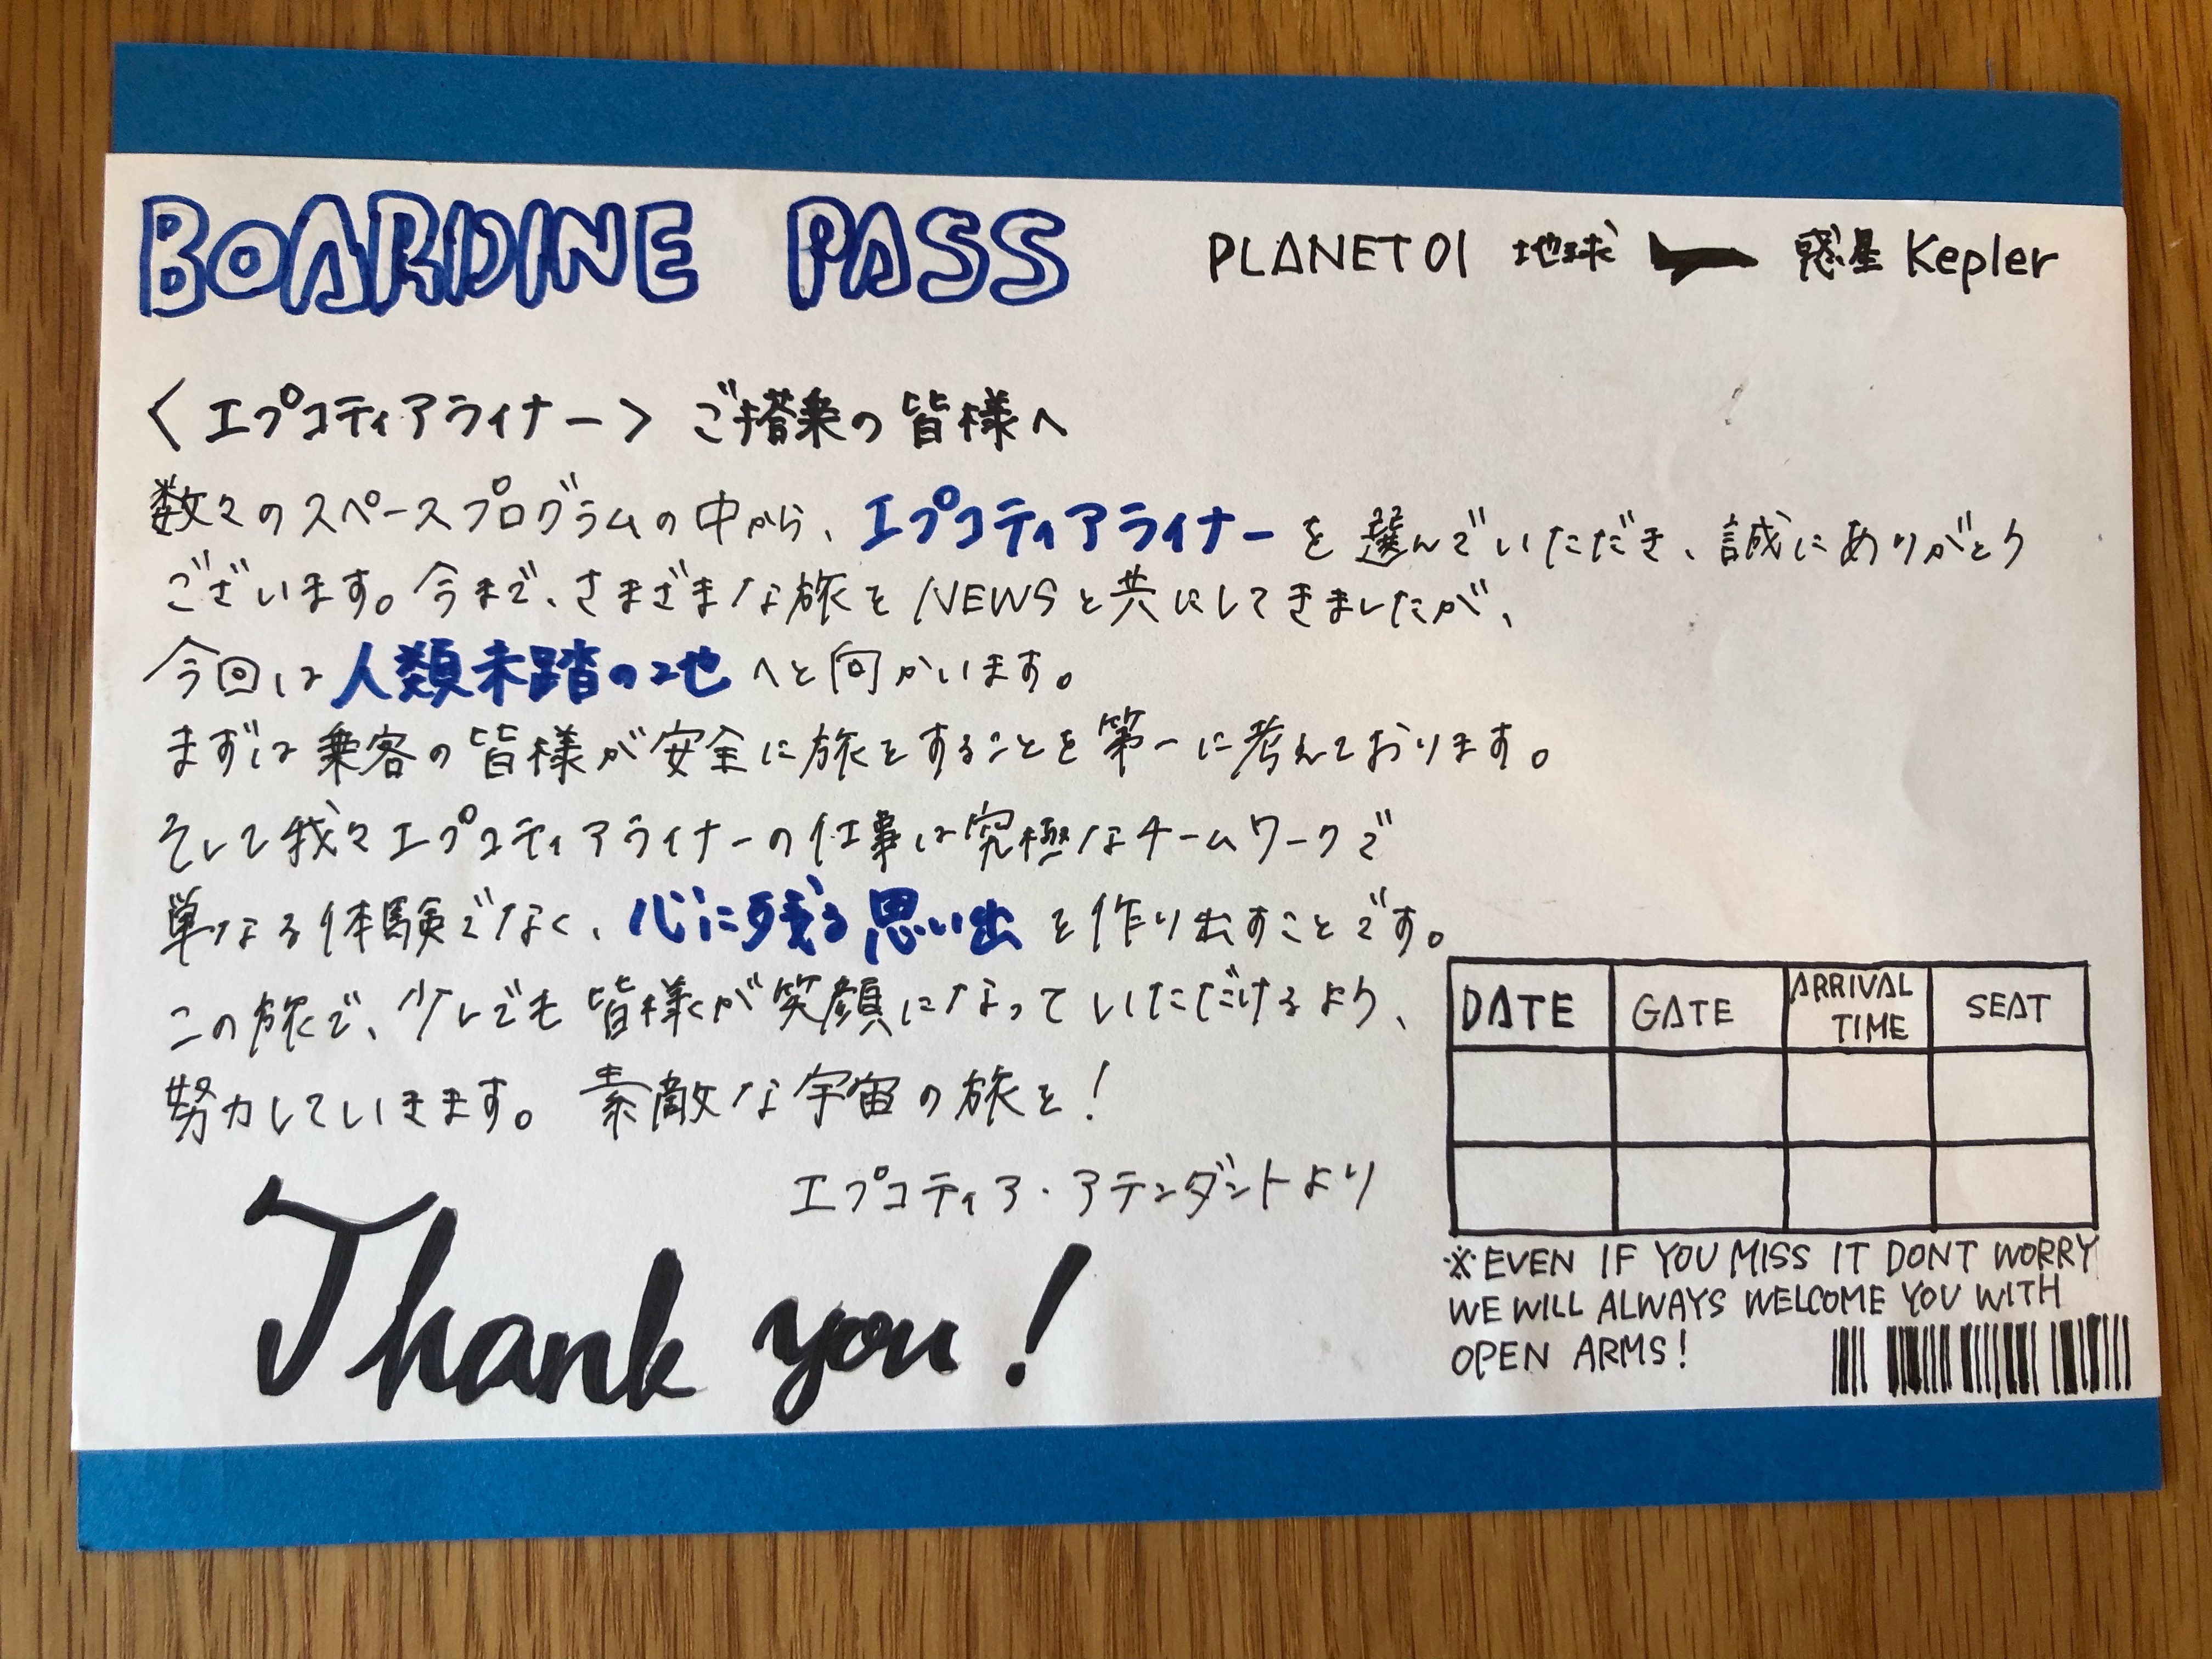 BOARDINE PASS
PLANET01 地球 惑星 Kepler
〈エプコティアライナー〉ご搭乗の皆様へ
数々のスペースプログラムの中から、エプコティアライナーを選んでいただき、誠にありがとう
ございます。今まで、さまざまな旅をNEWSと共にしてきましたが、
今回は人類未踏の地へと向かいます。
まずは乗客の皆様が安全に旅をすることを第一に考えております。
そして我々エプコティアライナーの仕事は究極なチームワークで
単なる体験でなく、心に残る思い出を作り出すことです。
この旅で、少しでも皆様が笑顔になっていただけるよう、
努力していきます。素敵な宇宙の旅を!
エプコティア・アテンダントより
Thank you!
DATE GATE ARRIVAL TIME SEAT
※EVEN IF YOU MISS IT DONT WORRY
WE WILL ALWAYS WELCOME YOU WITH
OPEN ARMS!